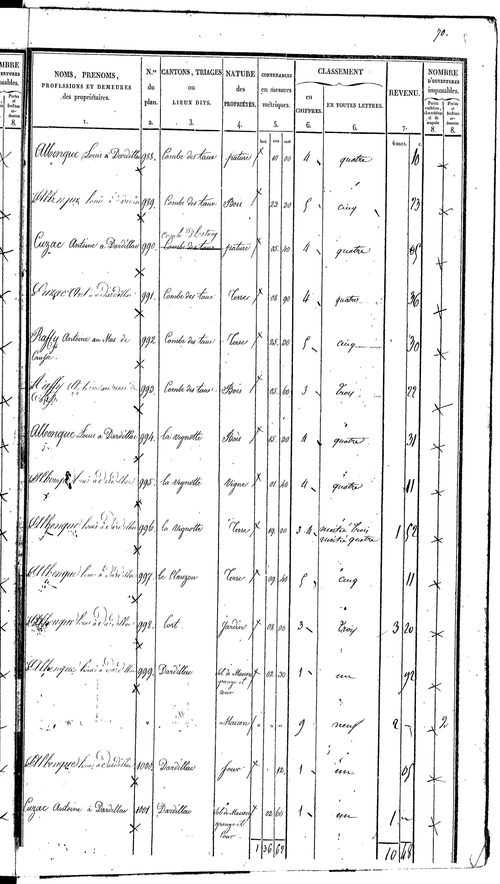 70.
NOMS, PRENOMS, PROFESSIONS ET DEMEURES des propriétaires. 1.
N.os du plan. 2.
CANTONS, TRIAGES ou LIEUX DITS. 3.
NATURE des PROPRIÉTÉS. 4.
CONTENANCES en mesures métriques. 5.
CLASSEMENT
en CHIFFRES. 6.
EN TOUTES LETTRES. 6.
REVENU. 7.
NOMBRE D'OUVERTURES imposables.
8. 8.
francs. c.
Albenque Louis à Dardillac 988. Combe des taux pature 10 00 4 quatre 10
Albenque Louis à 989. Combe des taux Bois 23 20 5 cinq 23
Combe
Cuzac Antoine à Dardillac 990. Combe des taux pature 05 40 4 quatre 05
Cuzac Ant. à Dardillac 991. Combe des taux Terre 08 90 4 quatre 36
Raffy Antoine au Mas de 992 Combe des taux Terre 25 00 5 cinq 30
Raffy 993. Combe des taux Bois 05 60 3 Trois 22
Albenque Louis à Dardillac 994. la vignotte Bois 15 00 4 quatre 31
Albenque Louis à Dardillac 995. la vignotte Vigne 01 40 4 quatre 11
Albenque Louis à Dardillac 996. la vignotte Terre 19 00 3 4 moitié Trois moitié quatre 1 52
Albenque Louis à Dardillac 997. le Clauzou Terre 09 40 5 cinq 11
Albenque Louis à Dardillac 998. l'ort Jardin 08 00 3 Trois 3 20
Albenque Louis à Dardillac 999. Dardillac sol de Maison grange et cour 02 30 1 un 92
" Maison " " " 9 neuf 2 " 2
Albenque Louis à Dardillac 1000. Dardillac four 12 1 un 05
Cuzac Antoine à Dardillac 1001 Dardillac sol de Maison grange et cour 02 60 1 un 1 "
1 36 69
10 48